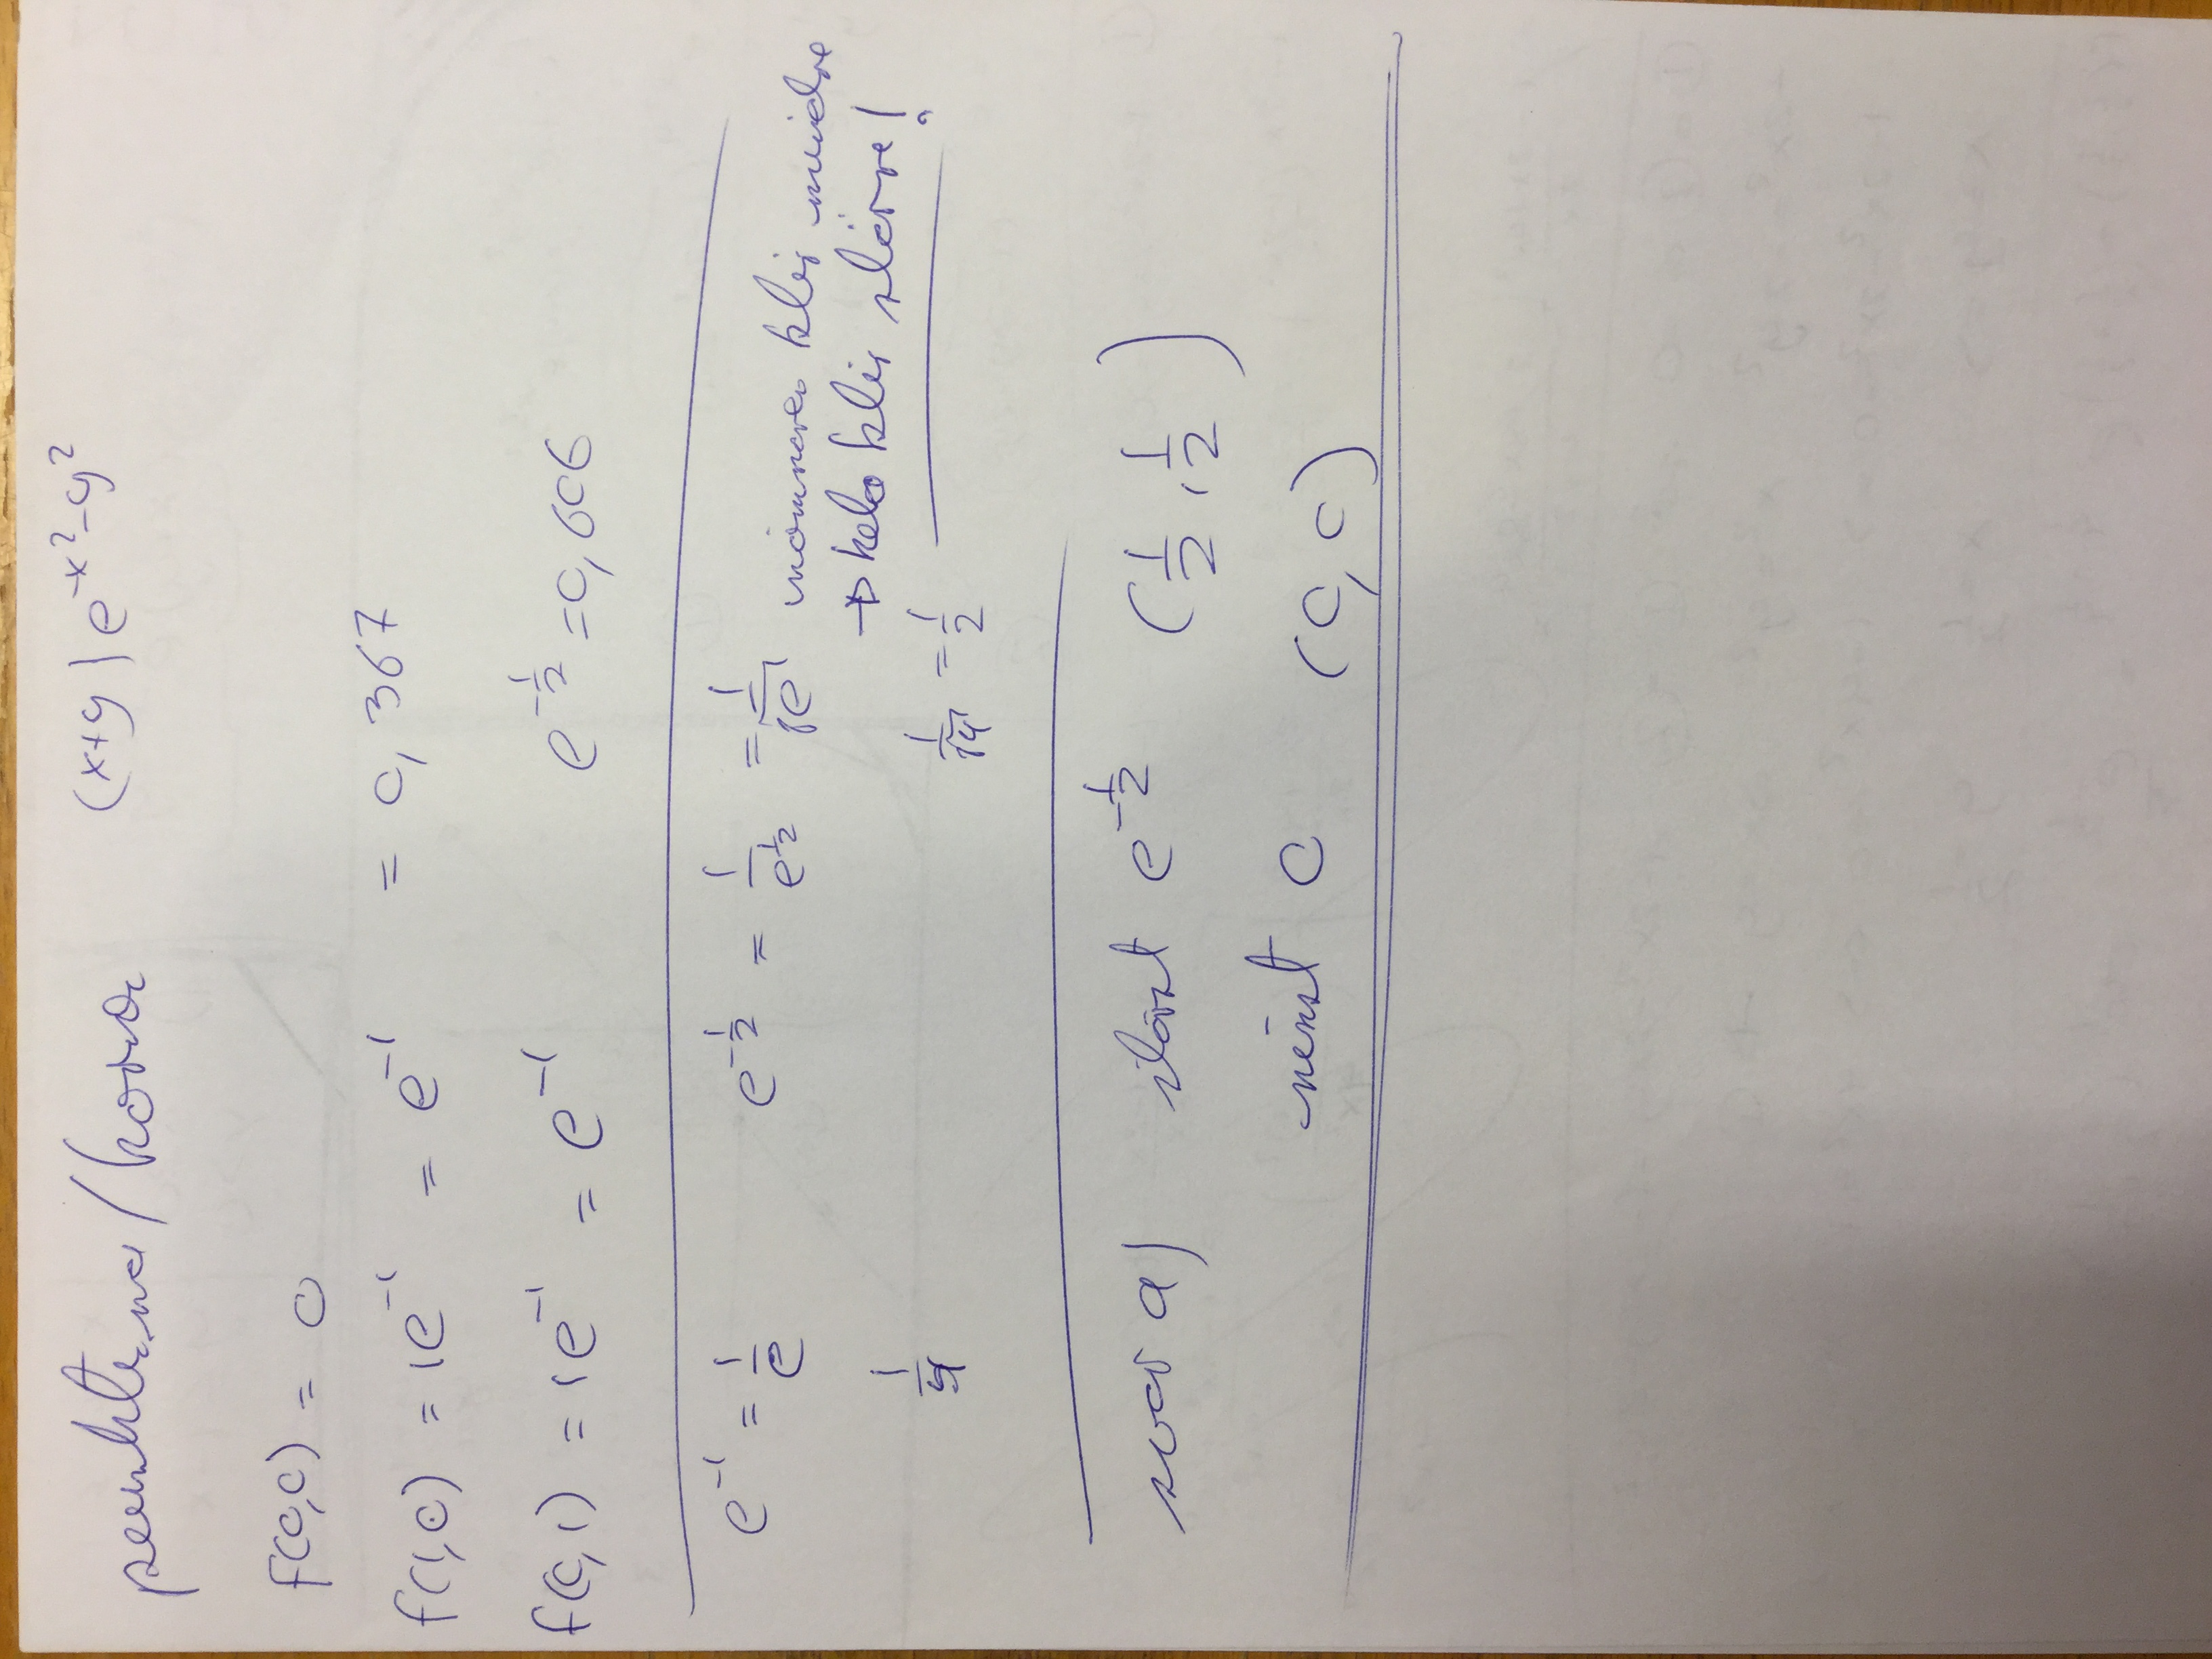 punkterna/hörna (x+y)e^{-x²-y²}
f(0,0) = 0
f(1,0) = 1e^{-1} = e^{-1} = 0,367
f(0,1) = 1e^{-1} = e^{-1} e^{-1/2} = 0,606
e^{-1} = 1/e e^{-1/2} = 1/e^{1/2} = 1/√e nämnaren blir mindre
→ hela blir större!
1/4 1/√4 = 1/2
svar a) störst e^{-1/2} (1/2, 1/2)
minst 0 (0,0)